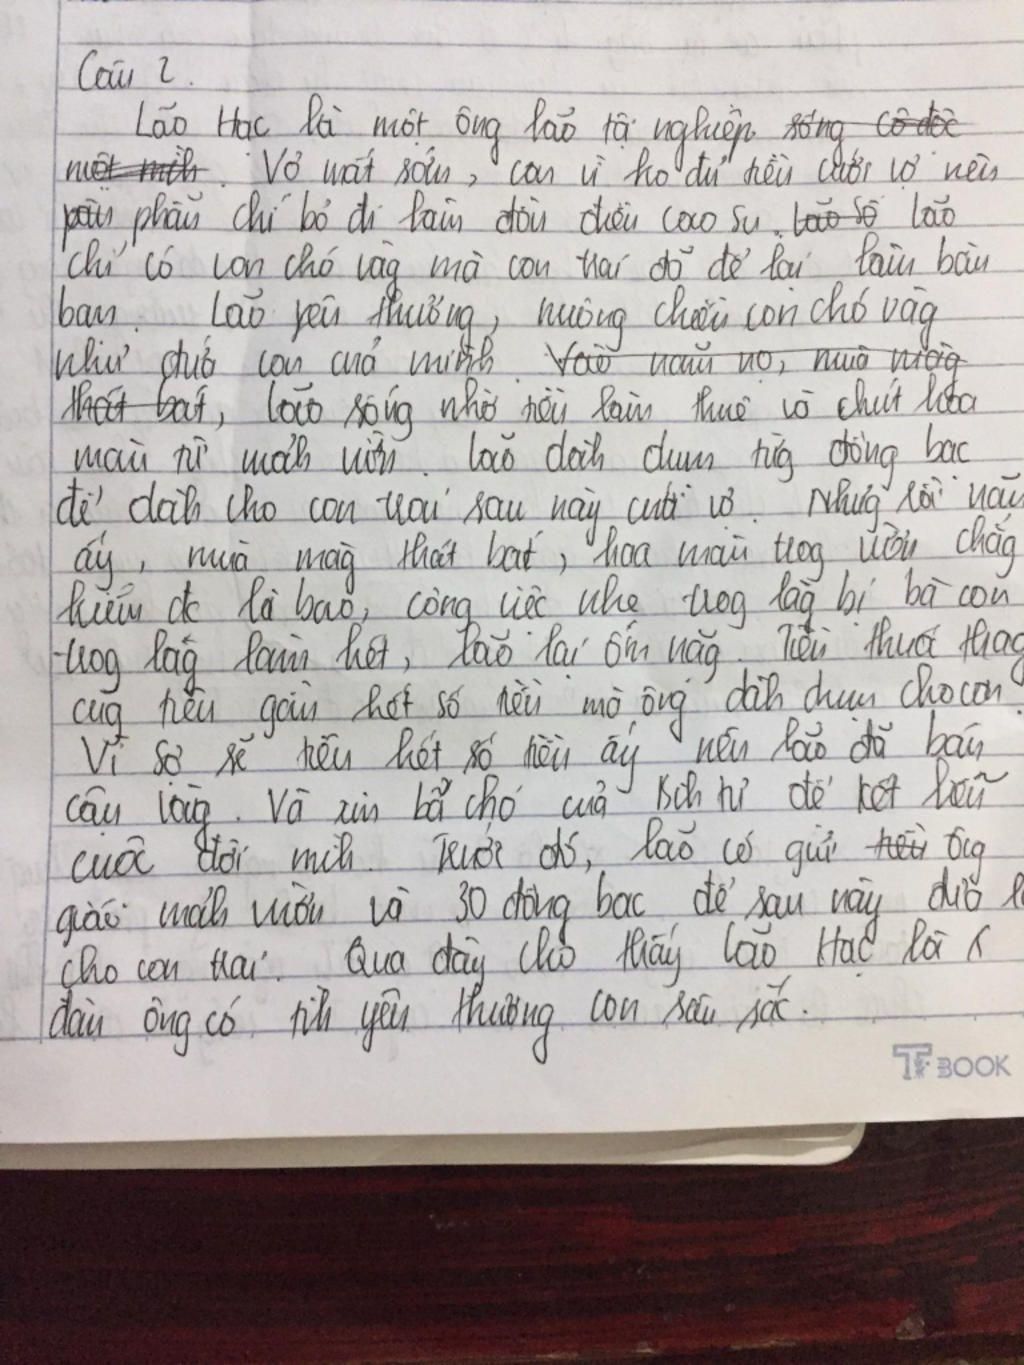 Câu 2.
Lão Hạc là một ông lão tội nghiệp sống cô độc
một mình. Vợ mất sớm, con vì ko đủ tiền cưới vợ nên
phẫn chí bỏ đi làm đồn điền cao su. lão số lão
chỉ có con chó vàg mà con trai đã để lại làm bàn
bạn. Lão yêu thương, nuông chiều con chó vàg
như đứa con của mình. Vào năm nọ, mùa màg
thất bát, lão sống nhờ tiền làm thuê và chút hoa
màu từ mảnh vườn. lão dành dụm từg đồng bạc
để dành cho con trai sau này cưới vợ. Nhưg rồi năm
ấy, mùa màg thất bát, hoa màu trog vườn chẳg
kiếm đc là bao, công việc nhẹ trog làg bị bà con
trog làg làm hết, lão lại ốm nặg. Tiền thuốc thag
cũg tiêu gần hết số tiền mà ông dành dụm cho con.
Vì sợ sẽ tiêu hết số tiền ấy nên lão đã bán
cậu Vàg. Và xin bả chó của Binh tư để kết liễu
cuộc đời mình. Trước đó, lão có gửi tiền ôg
giáo mảnh vườn và 30 đồng bạc để sau này đưa l
cho con trai. Qua đây cho thấy lão Hạc là
đàn ông có tình yêu thương con sâu sắc.
TF BOOK